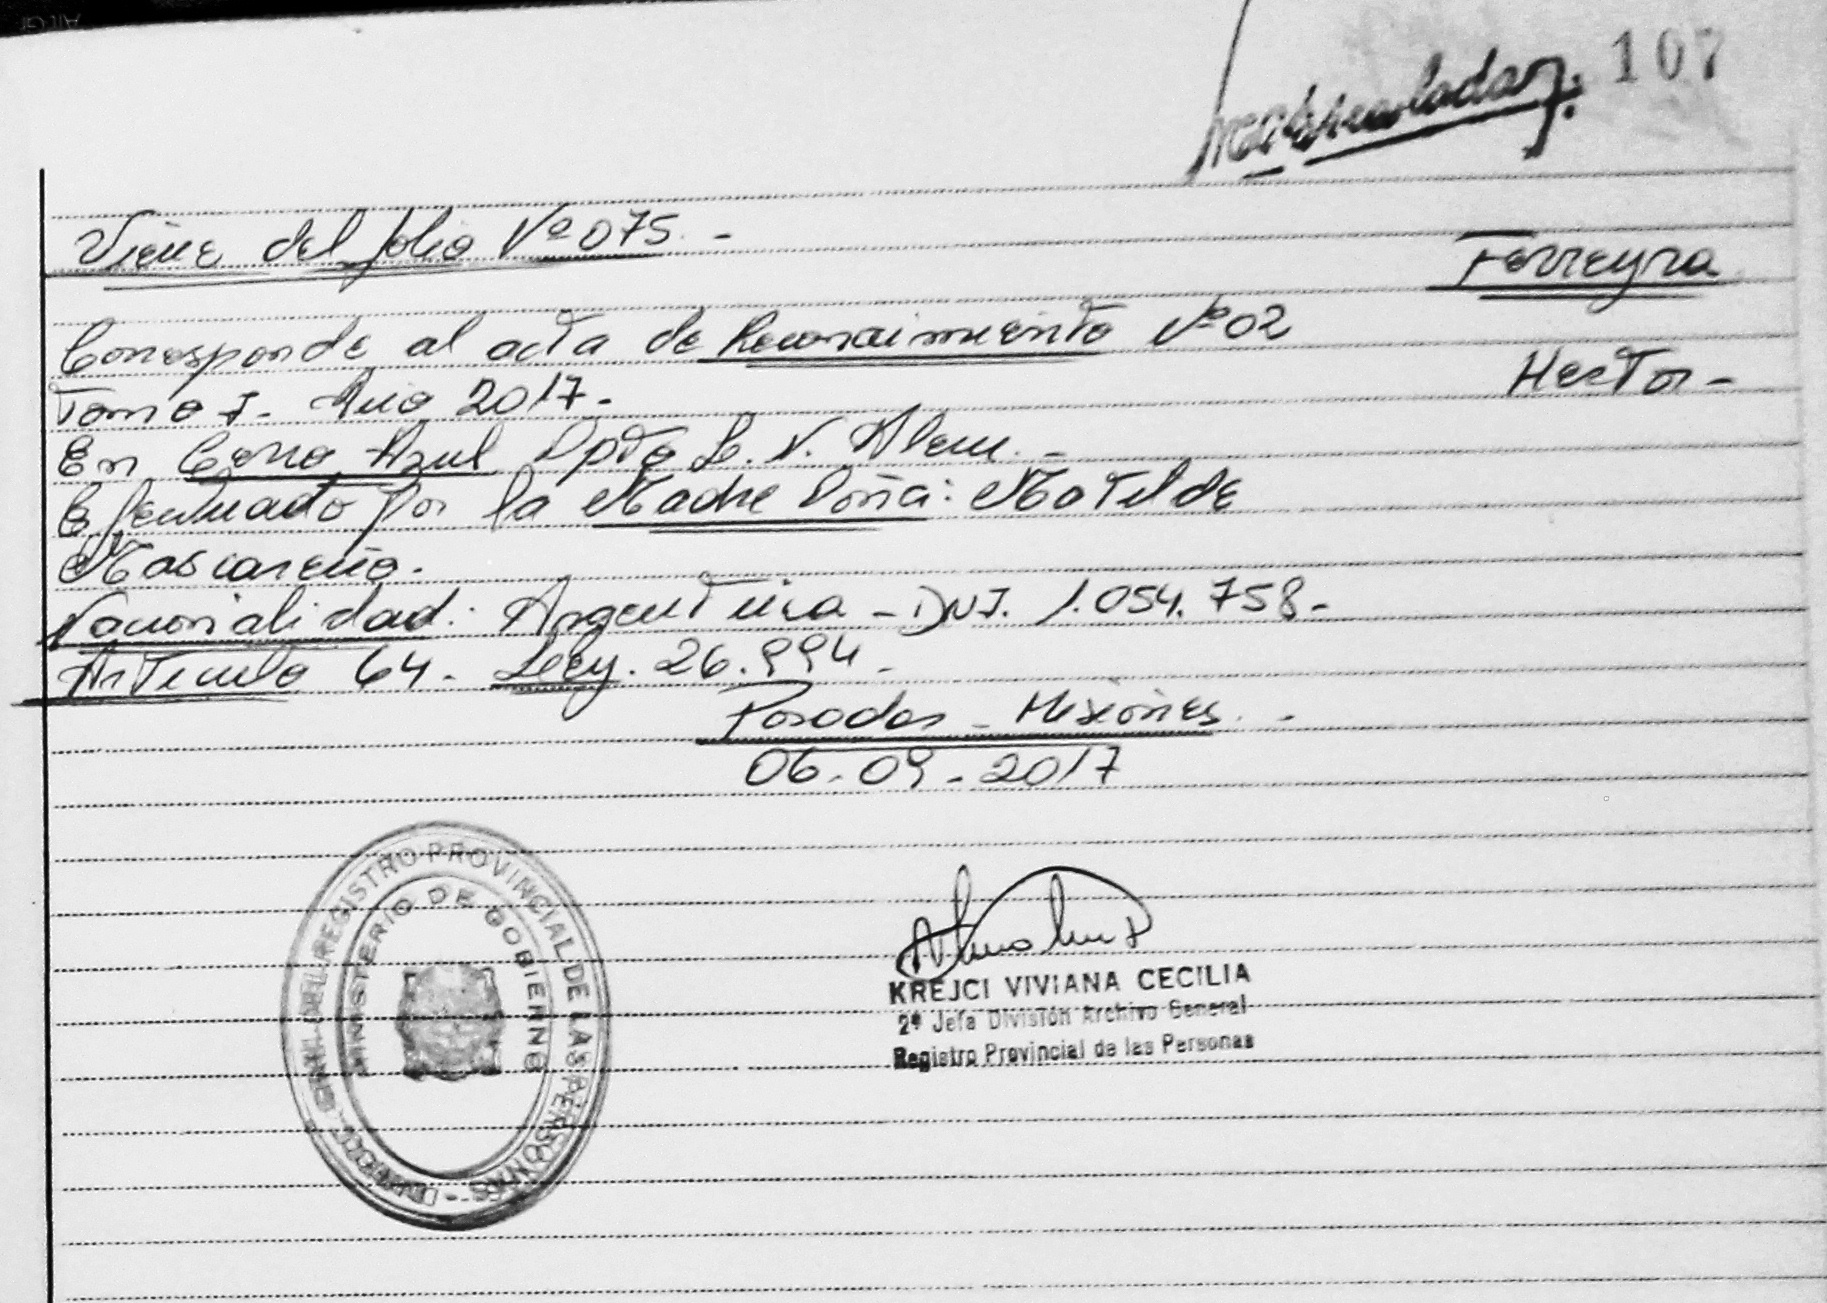 107
Viene del folio Nº 075. -
Ferreyra
Hector -
Corresponde al acta de Reconocimiento Nº 02
Tomo I - Año 2017. -
En Cerro Azul Dpto L. N. Alem. -
Efectuado por la Madre Doña: Matilde
Mascareño.
Nacionalidad: Argentina - DNI. 1.054.758 -
Articulo 64 - Ley. 26.994 -
Posadas - Misiones. -
06-09-2017
REGISTRO PROVINCIAL DE LAS PERSONAS
MINISTERIO DE GOBIERNO
KREJCI VIVIANA CECILIA
2ª Jefa División Archivo General
Registro Provincial de las Personas